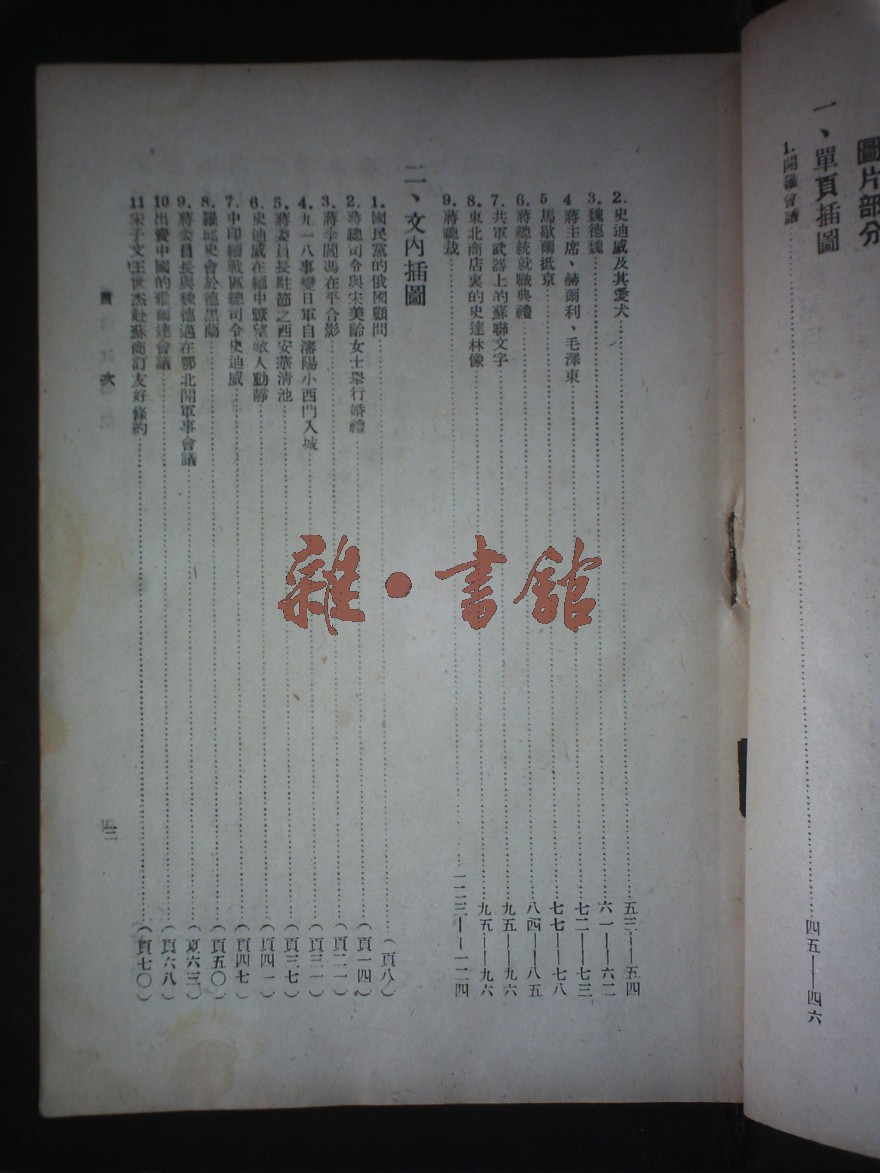 圖片部分
一、單頁插圖
1.開羅會議……四五——四六
2.史迪威及其愛犬……五三——五四
3.魏德邁……六一——六二
4 蔣主席、赫爾利、毛澤東……七二——七三
5 馬歇爾抵京……七七——七八
6.蔣總統就職典禮……八四——八五
7.共軍武器上的蘇聯文字……九五——九六
8.東北商店裏的史達林像……九五——九六
9.蔣總裁……一二三——一二四
二、文內插圖
1.國民黨的俄國顧問……(頁八)
2.蔣總司令與宋美齡女士舉行婚禮……(頁一四)
3.蔣李閻馮在平合影……(頁二一)
4.九一八事變日軍自瀋陽小西門入城……(頁三一)
5.蔣委員長駐節之西安華清池……(頁三七)
6.史迪威在緬中瞭望敵人動靜……(頁四一)
7.中印緬戰區總司令史迪威……(頁四七)
8.羅邱史會於德黑蘭……(頁五〇)
9.蔣委員長與魏德邁在鄂北開軍事會議……(頁六三)
10出賣中國的雅爾達會議……(頁六八)
11宋子文王世杰赴蘇商訂友好條約……(頁七〇)
次
雜·書館